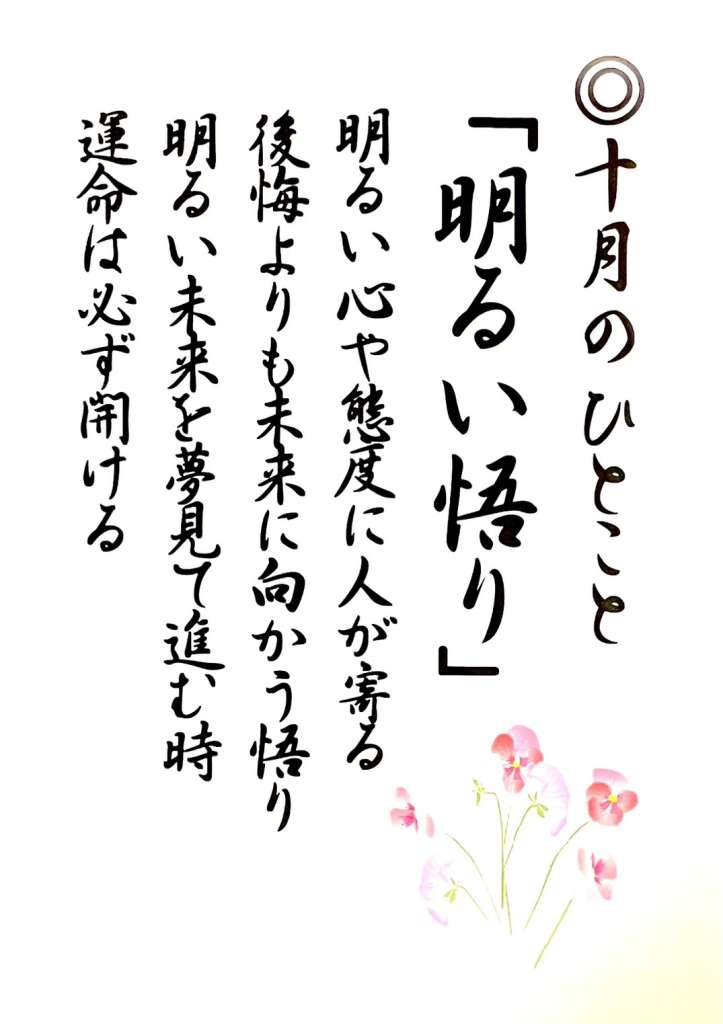 ◎十月のひとこと
「明るい悟り」
明るい心や態度に人が寄る
後悔よりも未来に向かう悟り
明るい未来を夢見て進む時
運命は必ず開ける